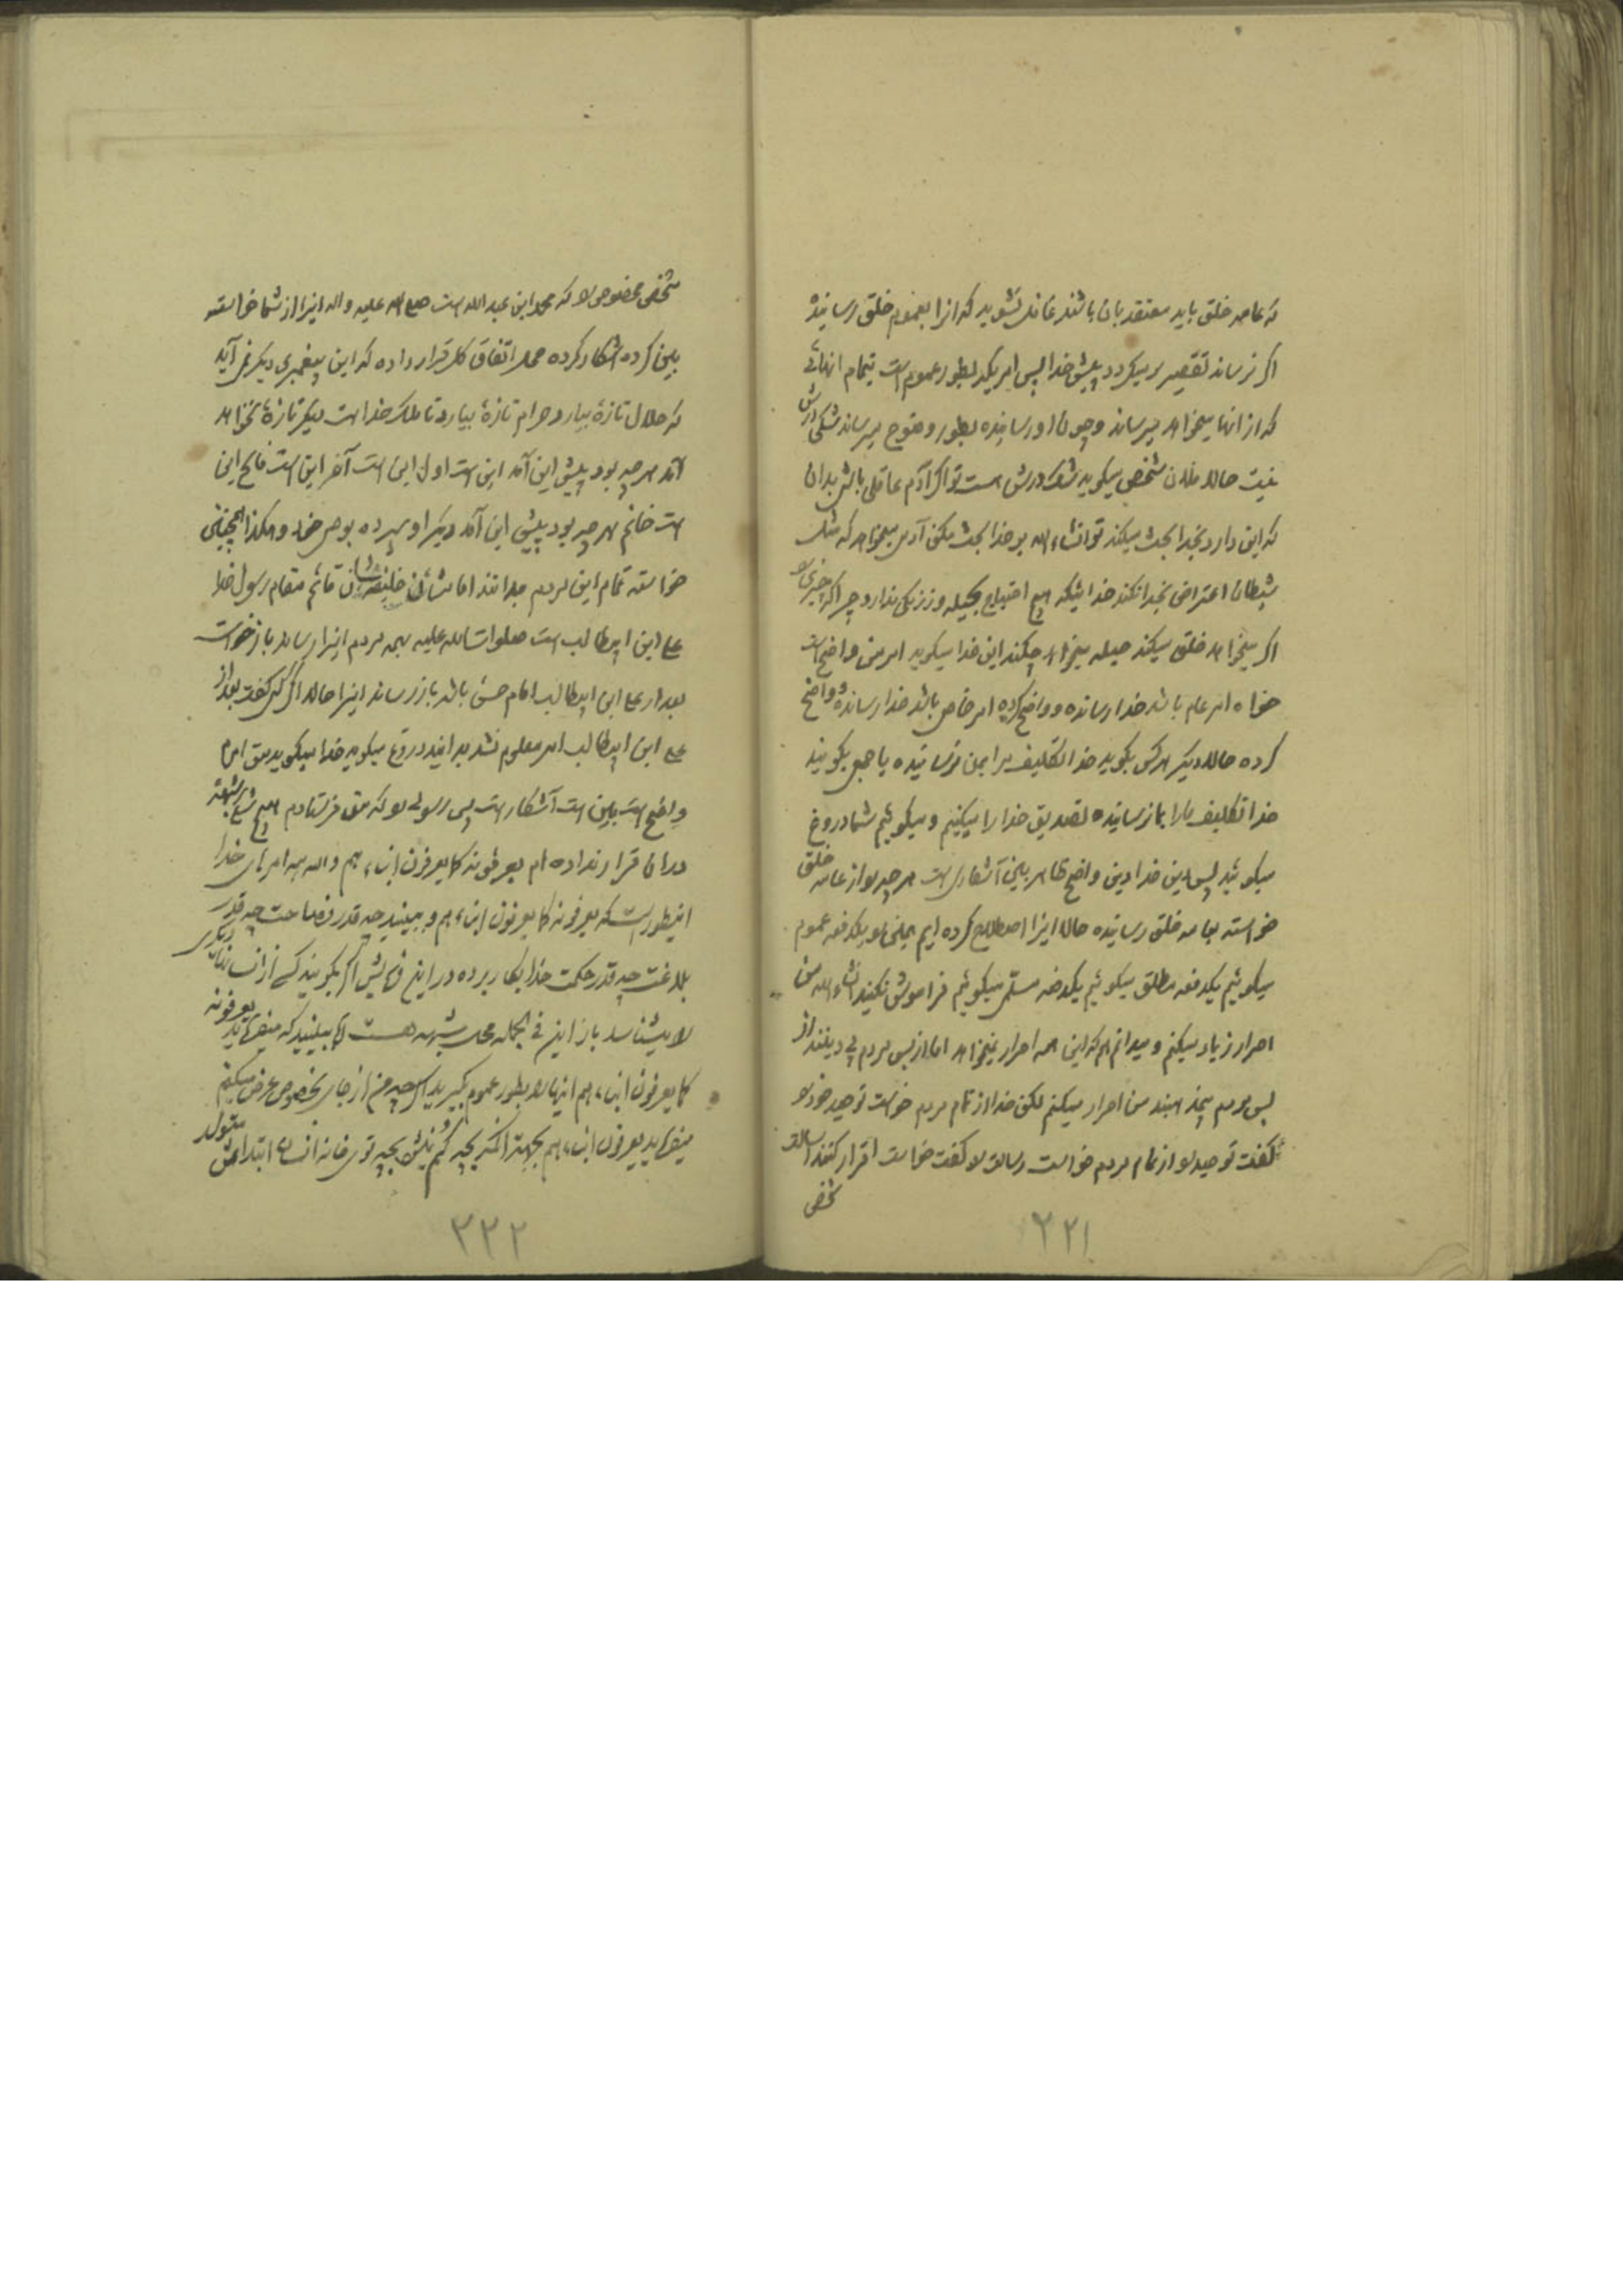 که عامه خلق باید معتقد بآن باشند غافل نشوید که آنرا بعموم خلق رسانیده
اگر نرساند تقصیر برمیگردد پیش خدا پس امریکه بطور عموم است بتمام آنهائی
که از آنها میخواهد میرساند وچون او رسانیده بطور وضوح میرساند شکی درش
نیست حالا فلان شخص میگوید شک درش هست تو اگر آدم عاقلی باش بدان
که این دارد بخدا بحث میکند تو انشاء الله بر خدا بحث مکن آدمی میخواهد که مثل
شیطان اعتراض بخدا نکند خدائیکه هیچ احتیاج بحیله و زیرکی ندارد چرا که چیزی را
اگر میخواهد خلق میکند حیله میخواهد چکند این خدا میگوید امر من واضح است
خواه امر عام باشد خدا رسانده و واضح کرده امر خاص باشد خدا رسانده و واضح
کرده حالا دیگر هرکس بگوید خدا تکلیف مرا بمن نرسانیده یا جمعی بگویند
خدا تکلیف مارا بما نرسانیده تصدیق خدا را میکنیم و میگوئیم شما دروغ
میگوئید پس دین خدا دین واضح ظاهر بیّن آشکاری است هرچه را از عامه خلق
خواسته بعامه خلق رسانیده حالا اینرا اصطلاح کرده ایم یعنی را یکدفعه عموم
میگوئیم یکدفعه مطلق میگوئیم یکدفعه مسلّمی میگوئیم فراموش نکنید انشاء الله من
اصرار زیاد میکنم و میدانم هم که این همه اصرار نمیخواهد اما از بس مردم پی دین نیند از
بس مردم بیخذ هستند من اصرار میکنم لکن خدا از تمام مردم خواست توحید خود را
گفت توحید را از تمام مردم خواست رسالت را گفت خواست اقرار کنند رسالت
شخص
۲۲۱
شخص مخصوصی را که محمد ابن عبدالله است صلی الله علیه و اله اینرا از شما خواسته
بیّن کرده آشکار کرده محل اتفاق کل قرار داده که این پیغمبری دیگر نمی آید
که حلال تازهٔ بیارد حرام تازهٔ بیارد تا ملک خدا است دیگر تازهٔ نخواهد
آمد هرچه بود پیش این آمد این است اول این است آخر این است فاتح این
است خاتم هرچه بود پیش این آمد دیگر او سپرده بوصی خود و هکذا همچنین
خواسته تمام این مردم بدانند امامشان خلیفه‌شان قائم مقام رسول خدا
علی ابن ابیطالب است صلوات الله علیه بهمه مردم اینرا رساند باز خواست
بعد از علی ابن ابیطالب امام حسن باشد باز رساند اینرا حالا اگر کسی گفت بعد از
علی ابن ابیطالب امر معلوم نشد بدانید دروغ میگوید خدا میگوید من امرم
واضح است بیّن است آشکار است پس رسولی را که من فرستادم هیچ شکی شبهه
در آن قرار نداده ام یعرفونه کما یعرفون ابناءهم و الله همه امرهای خدا
اینطور است که یعرفونه کما یعرفون ابناءهم و ببینید چه قدر فصاحت چه قدر
بلاغت چه قدر حکمت خدا بکار برده در این فرمایش اگر بگویند کسی از انسان دیگری
را بشناسد باز این فی الجمله محل شبهه هست اما ببینید که میفرماید یعرفونه
کما یعرفون ابناءهم اینها را بطور عموم بگیرید اگرچه من از جای بخصوص عرض میکنم
میفرماید یعرفون ابناءهم بجهت آنکه بچه گم نمیشود بچه توی خانه انسان ابتداش متولد
۲۲۲